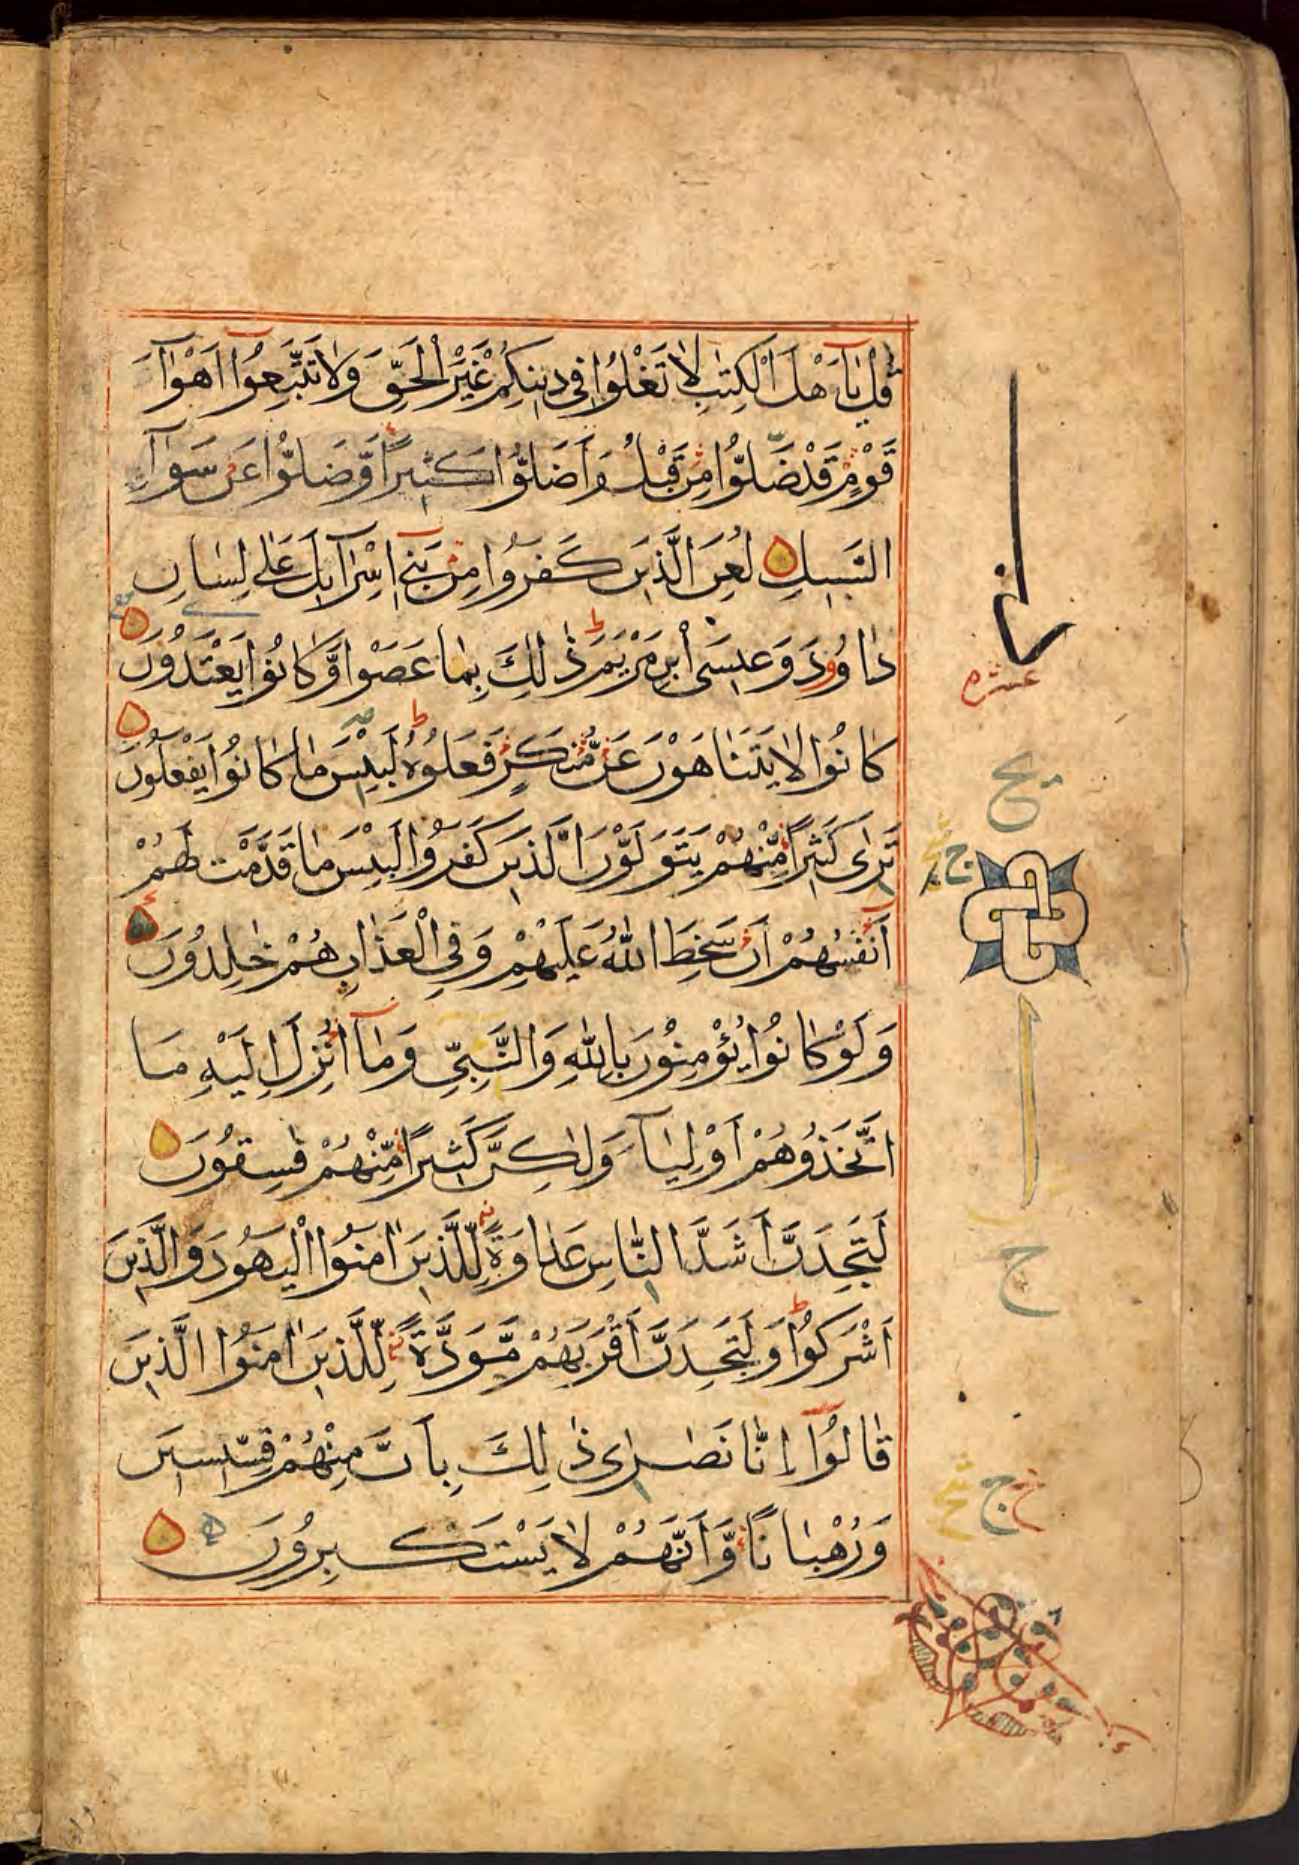 قُلْ يَآ اَهْلَ الْكِتٰبِ لَا تَغْلُوا فِى دِينِكُمْ غَيْرَ الْحَقِّ وَلَا تَتَّبِعُوٓا اَهْوَآءَ
قَوْمٍ قَدْ ضَلُّوا مِنْ قَبْلُ وَاَضَلُّوا كَثِيرًا وَّضَلُّوا عَنْ سَوَآءِ
السَّبِيلِ لُعِنَ الَّذِينَ كَفَرُوا مِنْ بَنِىٓ اِسْرَآئِيلَ عَلٰى لِسَانِ
دَاوُودَ وَعِيسَى ابْنِ مَرْيَمَ ذٰلِكَ بِمَا عَصَوْا وَّكَانُوا يَعْتَدُونَ
كَانُوا لَا يَتَنَاهَوْنَ عَنْ مُّنْكَرٍ فَعَلُوهُ لَبِئْسَ مَا كَانُوا يَفْعَلُونَ
تَرٰى كَثِيرًا مِّنْهُمْ يَتَوَلَّوْنَ الَّذِينَ كَفَرُوا لَبِئْسَ مَا قَدَّمَتْ لَهُمْ
اَنْفُسُهُمْ اَنْ سَخِطَ اللّٰهُ عَلَيْهِمْ وَفِى الْعَذَابِ هُمْ خٰلِدُونَ
وَلَوْ كَانُوا يُؤْمِنُونَ بِاللّٰهِ وَالنَّبِىِّ وَمَآ اُنْزِلَ اِلَيْهِ مَا
اتَّخَذُوهُمْ اَوْلِيَآءَ وَلٰكِنَّ كَثِيرًا مِّنْهُمْ فٰسِقُونَ
لَتَجِدَنَّ اَشَدَّ النَّاسِ عَدَاوَةً لِّلَّذِينَ اٰمَنُوا الْيَهُودَ وَالَّذِينَ
اَشْرَكُوا وَلَتَجِدَنَّ اَقْرَبَهُمْ مَّوَدَّةً لِّلَّذِينَ اٰمَنُوا الَّذِينَ
قَالُوٓا اِنَّا نَصٰرٰى ذٰلِكَ بِاَنَّ مِنْهُمْ قِسِّيسِينَ
وَرُهْبَانًا وَّاَنَّهُمْ لَا يَسْتَكْبِرُونَ
عشره
ج